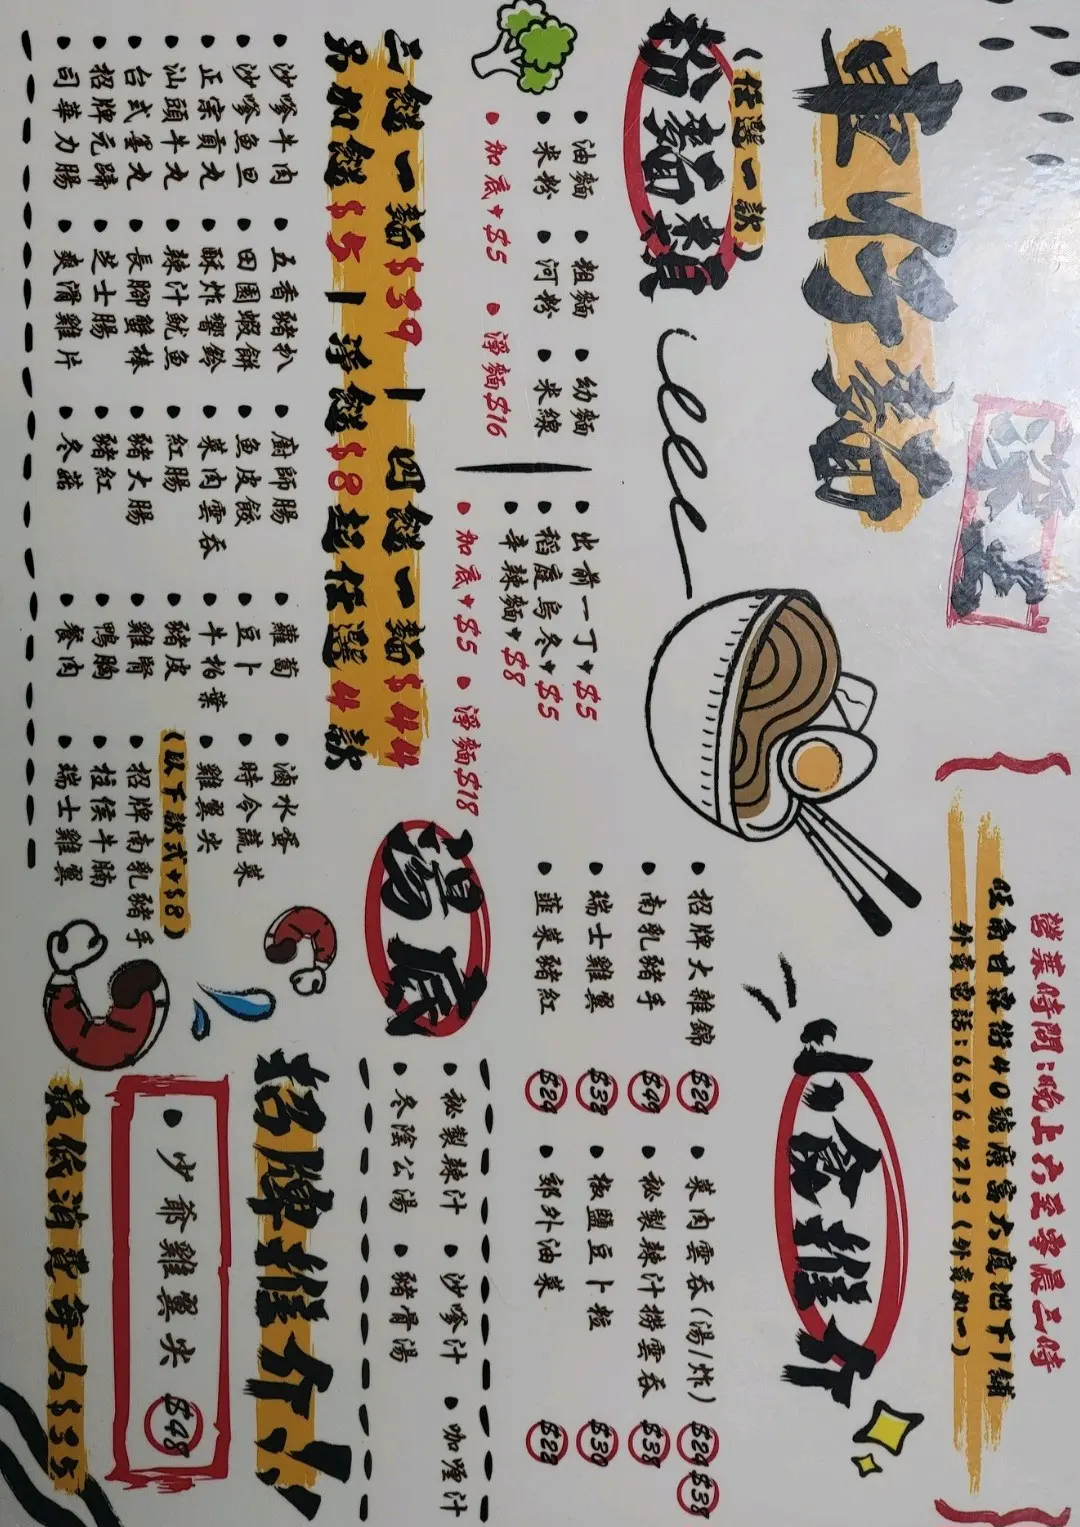 車仔麵
營業時間：晚上六至零晨三時
旺角白布街40號廣富大廈地下1舖
外賣電話：6676 4213（外賣加一）
粉麵類
（任選一款）
• 油麵 • 粗麵 • 幼麵
• 米粉 • 河粉 • 米線
• 加底+$5 • 淨麵$16
• 出前一丁+$5
• 稻庭烏冬+$5
• 辛辣麵+$8
• 加底+$5 • 淨麵$18
三餸一麵$39 | 四餸一麵$44
另加餸$5 | 淨餸$8起任選4款
• 沙嗲牛肉 • 五香豬扒 • 廚師腸 • 蘿蔔 • 滷水蛋
• 沙嗲魚旦 • 田園蝦餅 • 魚皮餃 • 豆卜 • 時令蔬菜
• 正宗貢丸 • 酥炸響鈴 • 菜肉雲吞 • 牛柏葉 • 雞翼尖
• 汕頭牛丸 • 辣汁魷魚 • 紅腸 • 豬皮 （以下款式+$8）
• 台式墨丸 • 長腳蟹棒 • 豬大腸 • 雞腎 • 招牌南乳豬手
• 招牌元蹄 • 芝士腸 • 豬紅 • 鴨胸 • 柱侯牛腩
• 司華力腸 • 爽滑雞片 • 冬菇 • 餐肉 • 瑞士雞翼
小食推介
• 招牌大雜錦 $24 • 菜肉雲吞(湯/炸) $24 $38
• 南乳豬手 $49 • 秘製辣汁撈雲吞 $38
• 瑞士雞翼 $32 • 椒鹽豆卜粒 $30
• 韮菜豬紅 $24 • 郊外油菜 $22
湯底
• 秘製辣汁 • 沙嗲汁 • 咖喱汁
• 冬陰公湯 • 豬骨湯
招牌推介
• 少爺雞翼尖 $48
最低消費每人$35